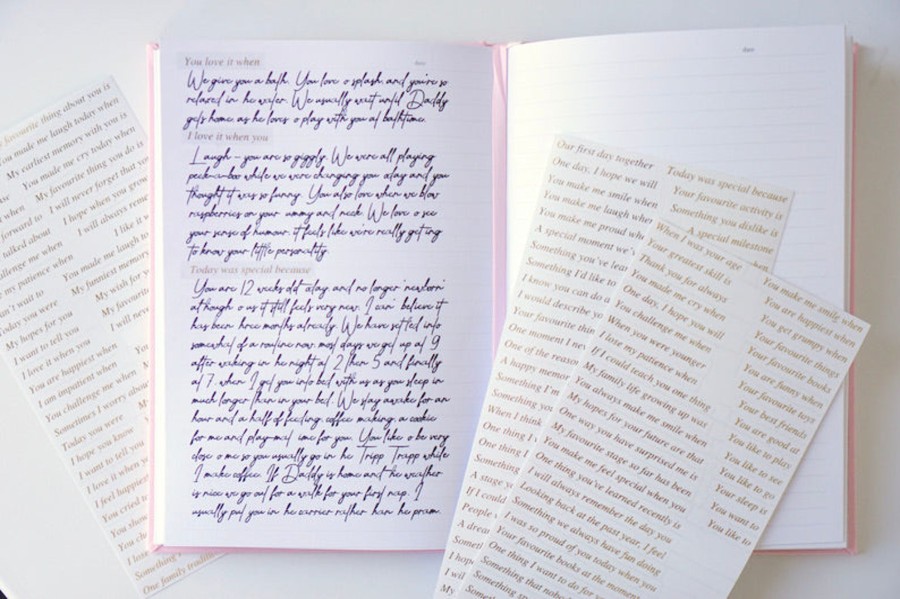 favourite thing about you is
You made me laugh today when
My earliest memory with you is
You made me cry today when
My favourite thing you do is
I will never forget that you
I hope when you grow
I will always remember
You made me laugh to
My funniest memory
My wish for y
My favourite
I will neve
forward to
talked about
challenge me when
my patience when
Today you were
My hopes for you
I want to tell you
I love it when you
You are happiest when
I am impatient when
You challenge me when
Sometimes I worry about
Today you were
I hope you know
I want to tell you
I love it when you
I feel happiest
You cried to
Something
One family tradition
You love it when
date
We give you a bath. You love o splash, and you're so
relaxed in he water. We usually wait until Daddy
gets home as he loves o play with you at bathtime.
I love it when you
Laugh - you are so giggly. We were all playing
peek-a-boo while we were changing you oday and you
thought it was so funny. You also love when we blow
raspberries on your ummy and neck. We love o see
your sense of humour, it feels like we're really getting
to know your little personality.
Today was special because
You are 12 weeks old oday and no longer 'newborn'
although o us it still feels very new. I can' believe it
has been hree months already. We have set led into
somewhat of a routine now, most days we get up at 9
after waking in he night at 2, hen 5 and finally
at 7, when I get you into bed with us as you sleep in
much longer than in your bed. We stay awake for an
hour and a half of feeding, coffee making, a cookie
for me and play-mat ime for you. You like o be very
close o me so you usually go in he Tripp Trapp while
I make coffee. If Daddy is home and he weather
is nice we go out for a walk for your first nap. I
usually put you in he carrier rather han he pram.
date
Our first day together
One day, I hope we will
You make me smile when
You make me laugh when
You make me proud when
A special moment we'
Something you've lear
Something I'd like to
I know you can do a
I would describe yo
Your favourite thin
One moment I nev
One of the reason
A happy memor
Something I'm
Something you
When I think
One thing I
Something
A stage y
If I could
People
A drea
I hope
I wil
My
Today was special because
Your favourite activity is
Something you dislike is
A special milestone
When I was your age
Your greatest skill is
Thank you for always
You made me cry when
One day, I hope you will
You challenge me when
When you were younger
I lose my patience when
If I could teach you one thing
My family life growing up was
You always make me smile when
My hopes for your future are that
One way you have surprised me is
My favourite stage so far has been
You make me feel special when you
One thing you've learned recently is
I will always remember the day you
Looking back at the past year, I feel
Something we always have fun doing
I was so proud of you today when you
Your favourite books at the moment
One thing I want to do for you
Something that nobo
Something
You make me smile when
You are happiest when
You get grumpy when
Your favourite things
Your favourite books
You are funny when
Your favourite toys
Your best friends
You are good at
You like to play
You like to see
You like to go
Your sleep is
You want to
You like to